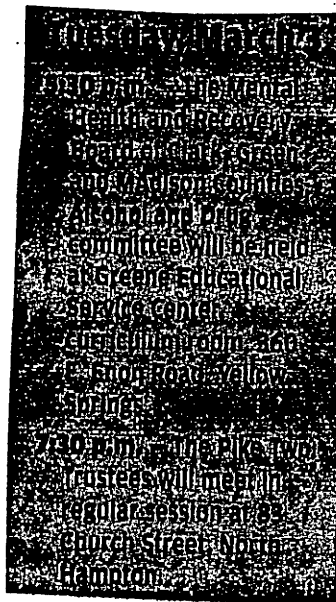 Tuesday, March
p.m. — The Mental
Health and Recovery
Board of Clark, Green
and MAdison Counties
Alcohol and Drug
committee will be held
at Greene Educational
Service Center's
curriculum room, 360
E. Enon Road, Yellow
Springs.
7:30 p.m. — The Pike Twp
Trustees will meet in
regular session at
Church Street, North
Hampton.